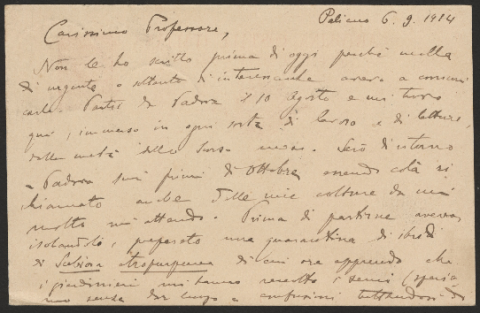 Pelicano 6. 9. 1914
Carissimo Professore,
Non le ho scritto prima di oggi perchè nulla
di urgente o soltanto di interessante avevo a comuni
carle. Partii da Padova il 10 Agosto e mi trovo
qui, immerso in ogni sorta di lavoro e di letture,
dalla metà dello scorso mese. Sarò di ritorno
a Padova sui primi di Ottobre, essendo colà ri
chiamato anche dalle mie colture da cui
molto mi attendo. Prima di partire avevo,
isolandole, preparato una quarantina di ibridi
di Scabiosa atropurpurea di cui ora apprendo che
i giardinieri mi hanno raccolto i semi (speria
mo senza dar luogo a confusioni